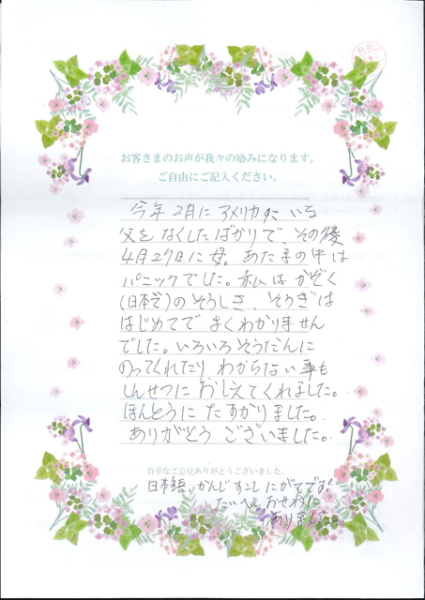 お客さまのお声が我々の励みになります。
ご自由にご記入ください。
今年2月にアメリカに いる
父をなくしたばかりで、その後
4月27日に母。あたまの中は
パニックでした。私は かぞく
(日本で)のそうしき、そうぎは
はじめてで よくわかりません
でした。いろいろそうだんに
のってくれたり わからない事も
しんせつに おしえてくれました。
ほんとうに たすかりました。
ありがとう ございました。
貴重なご意見ありがとうございました。
日本語、かんじ すこし にがてです。
たいへん おせわに
ありました。